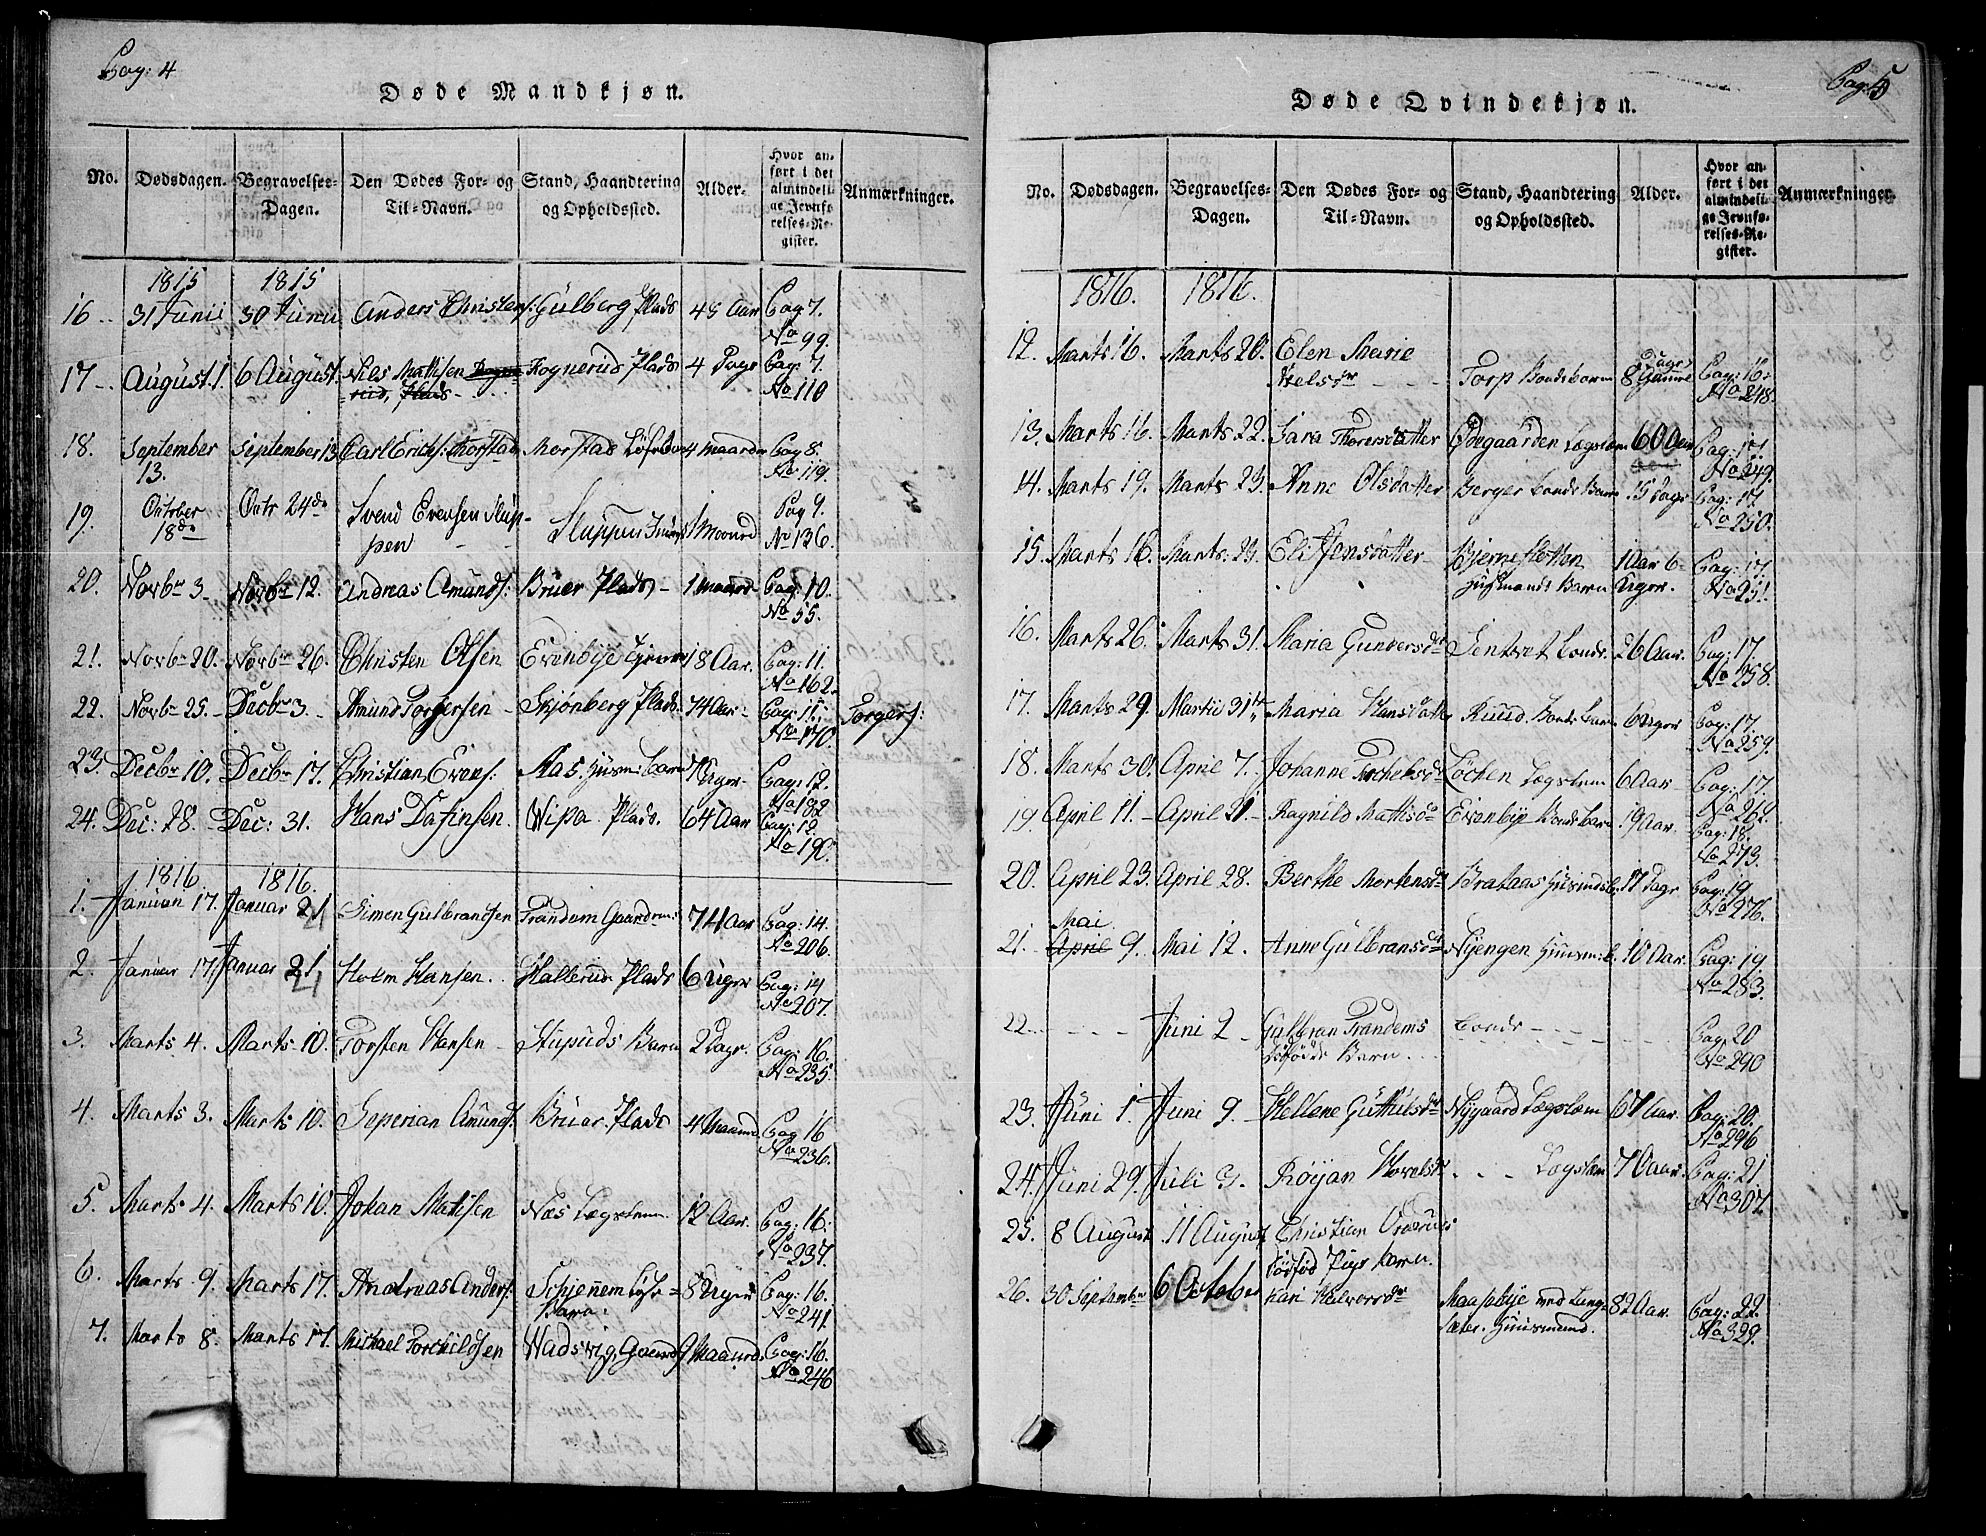 Pag: 4
Døde Mandkjøn.
No. Dødsdagen. Begravelses-Dagen. Den Dødes For- og Til-Navn. Stand, Haandtering og Opholdssted. Alder. Hvor anført i det almindelige Jevnførelses-Register. Anmærkninger.
1815 1815
16 31 Junii 30 Junii Anders Christens: Gulberg Plads 45 Aar Pag 7. No 99.
17 August 1. 6 August. Niels Mathisen Kognerud Plads 4 Dage Pag: 7. No 110
rud, Plads
18. September 13. September 13 Carl Erichs: Morstad Morstad 4 maaned Pag 8. No 119.
19. October 18de Octr 24de Svend Evensen Slup-pen Sluppen 1 Moaned Pag 9. No 136.
20. Novbr 3 Novbr 12. Andreas Amunds: Bruer Plads 1 maaned Pag: 10. No 55.
21. Novbr 20. Novbr 26. Christen Olsen Evenbye 18 Aar. Pag: 11. No 162.
22. Novbr 25. Decbr 3. Amund Torgersen Skjønberg Plads. 74 Aar Pag: 11. No 170. Torgers:
23. Decbr 10. Decbr 17. Christian Evens: Aas. Huusm: Barn 7 Uger Pag: 12. No 182
24. Dec: 28. Dec: 31. Hans Dafinsen. Wissa Plads. 64 Aar Pag: 12. No 190.
1816 1816.
1. Januari 17. Januar 21 Simen Gulbrandsen Trandem Gaardm: 74 Aar Pag: 14. No 206.
2. Januar 17. Januar 21 Holm Hansen. Hallerud Plads 6 Uger Pag: 14 No 207.
3. Marts 4. Marts 10. Torsten Hansen Stupuds Barn 2 Dage. Pag: 16. No 235.
4. Marts 3. Marts 10. Seperian Amunds: Bruer Plads 4 Maaned Pag 16 No 236.
5. Marts 4. Marts 10. Johan Matisen Næs Lægslem 12 Aar. Pag: 16. No 237.
6. Marts 9. Marts 17. Andreas Anders: Schjennem Barn: 8 Ugen Pag: 16. No 241.
7. Marts 8. Marts 17. Michael Torchildsen Wadsvig, Gaard 9 Maaned. Pag: 16. No 246
Pag: 5
Døde Qvindekjøn.
No. Dødsdagen. Begravelses-Dagen. Den Dødes For- og Til-Navn. Stand, Haandtering og Opholdssted. Alder. Hvor anført i det almindelige Jevnførelses-Register. Anmærkninger.
1816. 1816.
12. Marts 16. Marts 20. Elen Marie Nielsdr Torp Bondebarn 8 Dage Gammel Pag: 16: No 248.
13. Marts 16. Marts 22. Sara Thorersdatter Ødegaarden Lægslem 60 Aar Pag: 17. No 249.
14. Marts 19. Marts 23. Anne Olsdatter Berger Bonde Barn 15 Dage Pag: 17. No 250.
15. Marts 16. Marts 23. Eli Jensdatter Bjerneslotten Huusmands Barn 1 Aar 6 Uger. Pag: 17. No 251.
16. Marts 26. Marts 31. Maria Gundersdr Bonde. 26 Aar. Pag: 17. No 258.
17. Marts 29. Martii 31te Maria Hansdatter Ruud Bonde Barn 6 Uger Pag: 17. No 259.
18. Marts 30. April 7. Johanne Løchen Lægslem 60 Aar Pag: 17. No 262.
19. April 11. April 21. Ragnild Mattisdr Evenbÿe Bonde Barn 19 Aar. Pag: 18. No 273.
20. April 23. April 28. Berthe Mortensdr Brataas Huusmds B. 17 Dage Pag: 19 No 276.
21. Mai April 9. Mai 12. Anne Gulbransdr Nyengen Huusm: B. 10 Aar. Pag: 19 No 283.
22. Juni 2 Gulbran Trandems Dødfødde Barn Bonde Pag. 20 No 290
23. Juni 1. Juni 9. Hellene Guthulsdr Nygaard Lægslem 67 Aar. Pag: 20. No 296
24. Juni 29. Juli 3. Røyan Lægslem 70 Aar. Pag: 21 No 307.
25. 8 August 11 August Christian Ordruds Dødfød Pige Barn.
26. 30 September 6 October Kari Halvorsdr Maasebye ved Lang-Sæter. Huusmand. 82 Aar. Pag: 22. No 329.